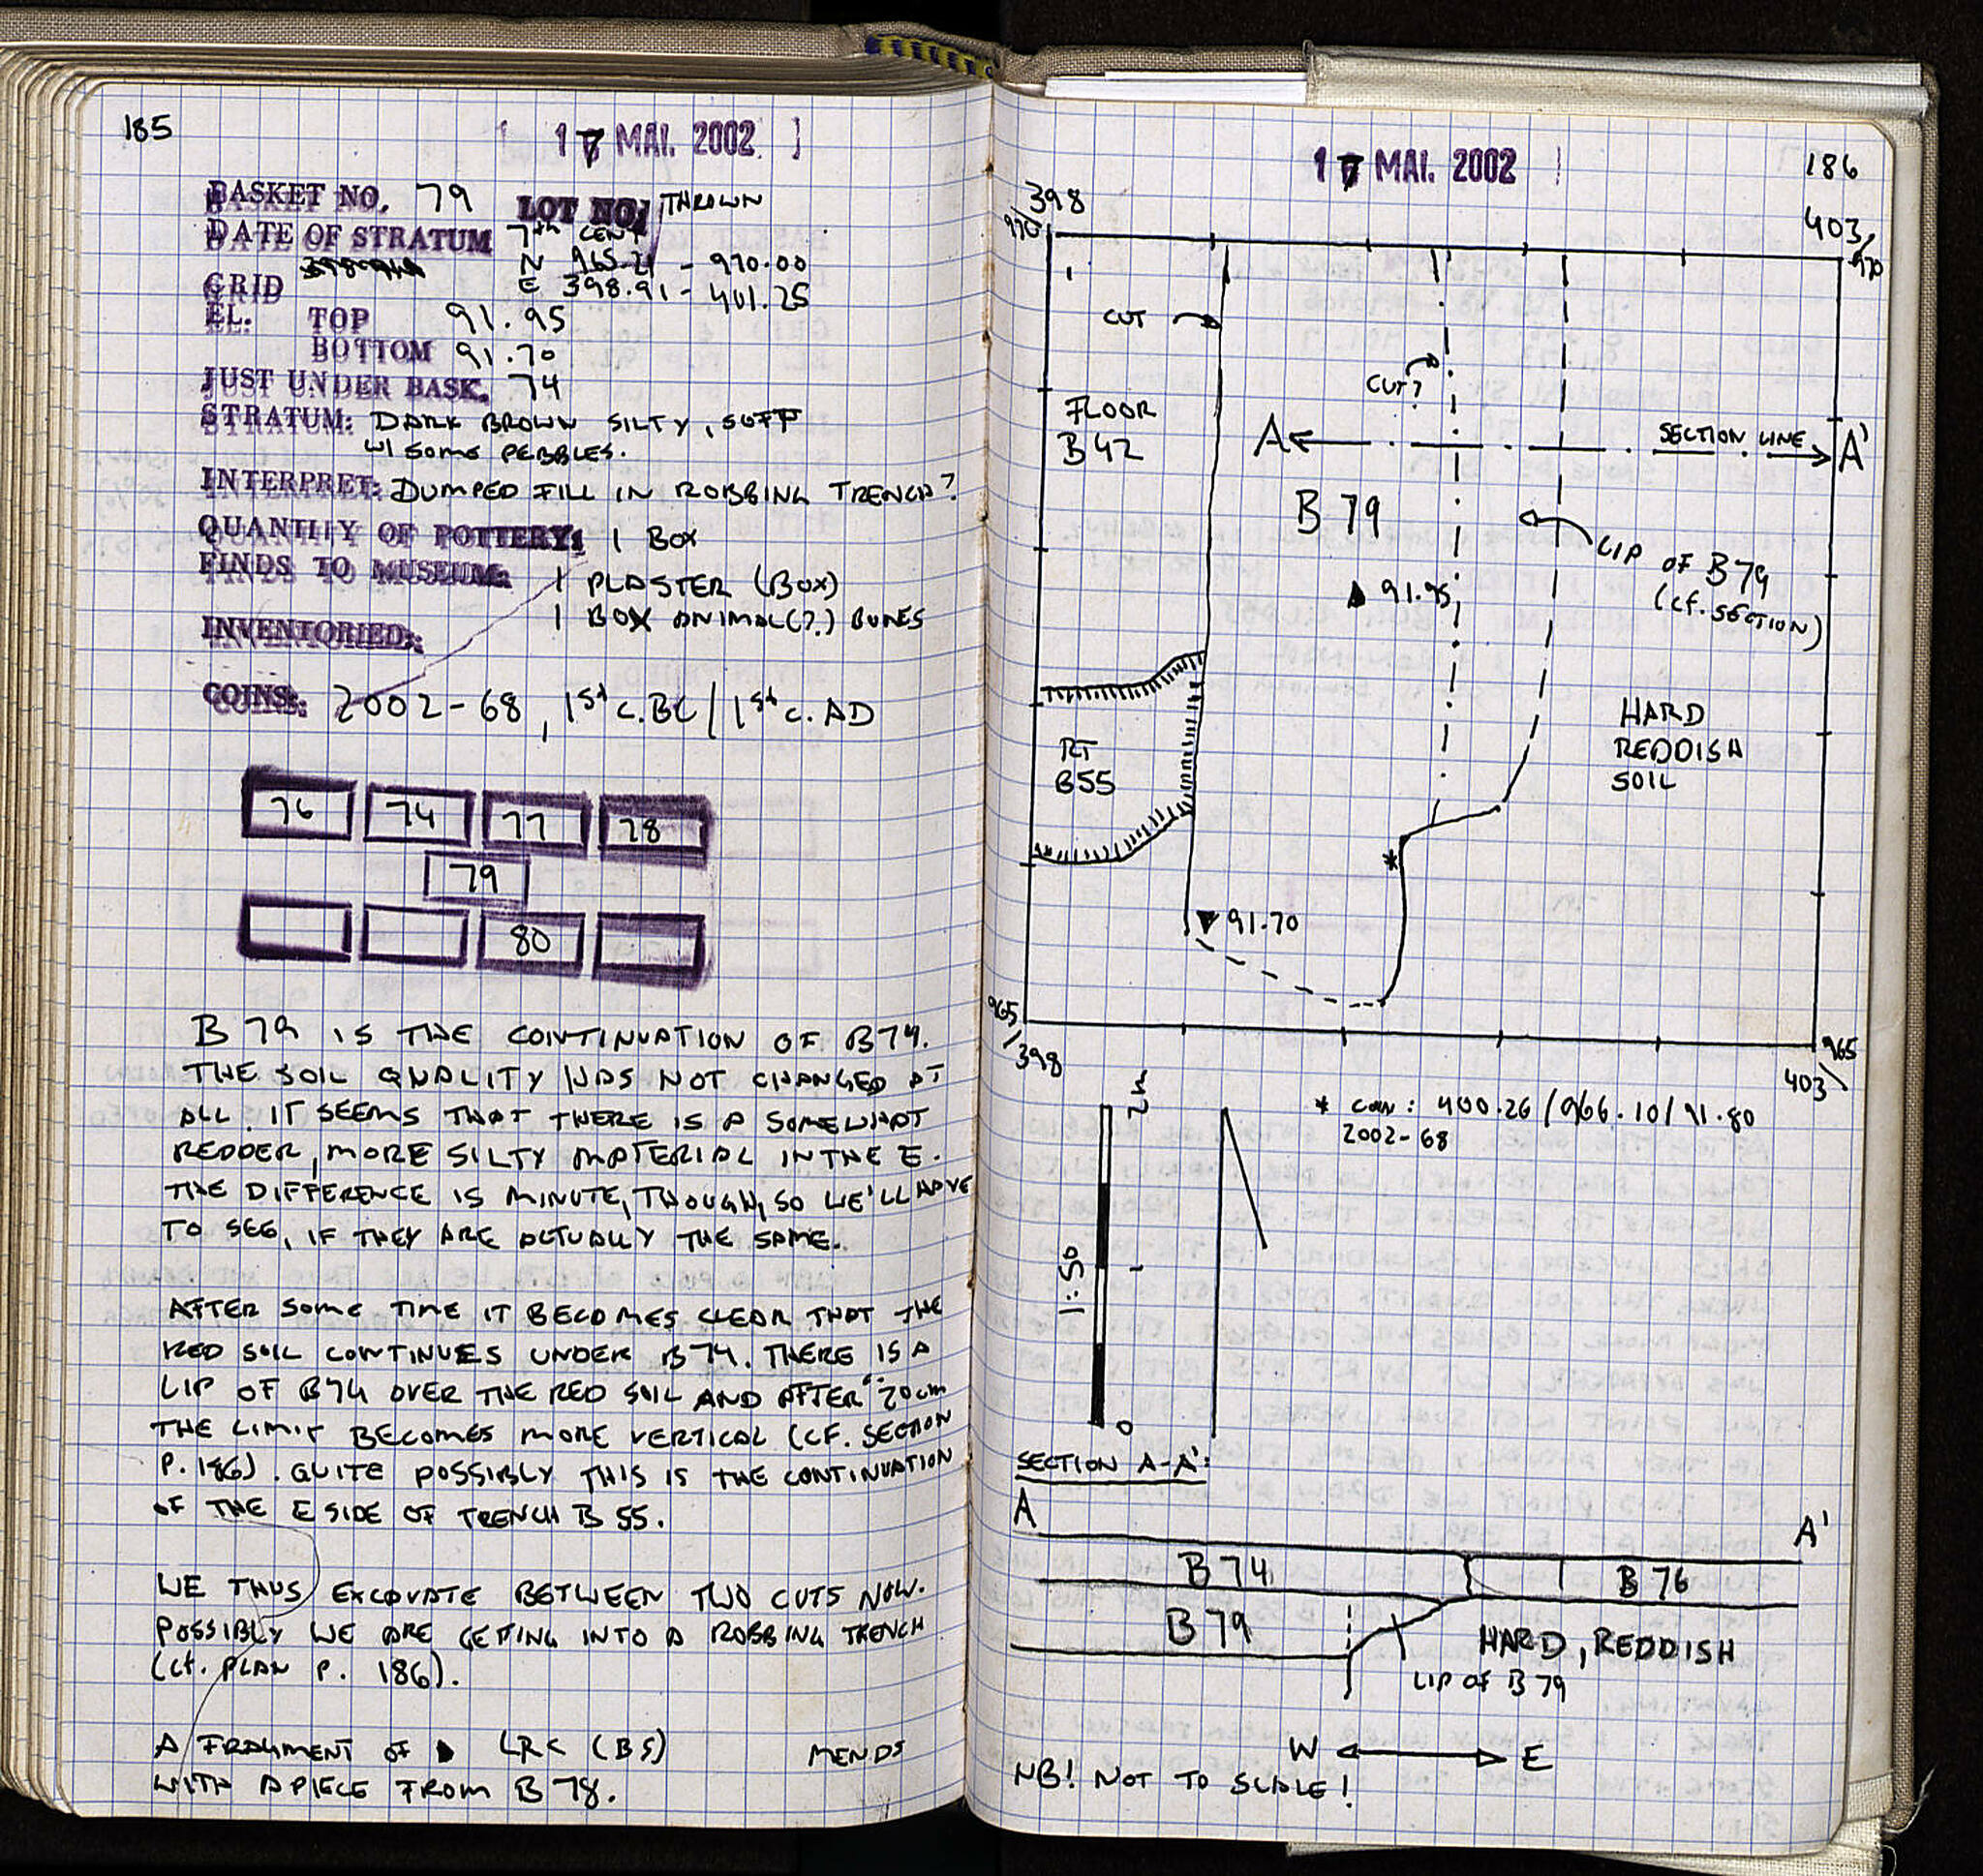 185
17 MAI. 2002
BASKET NO. 79 LOT NO. THROWN
DATE OF STRATUM 7th CENT
N 965.21 - 970.00
GRID E 398.91 - 401.25
EL. TOP 91.95
BOTTOM 91.70
JUST UNDER BASK. 74
STRATUM: DARK BROWN SILTY, SOFT
W/ SOME PEBBLES.
INTERPRET: DUMPED FILL IN ROBBING TRENCH?
QUANTITY OF POTTERY: 1 BOX
FINDS TO MUSEUM: 1 PLASTER (BOX)
1 BOX ANIMAL(?) BONES
INVENTORIED:
COINS: 2002-68, 1st c. BC / 1st c. AD
76 74 77 78
79
80
B 79 IS THE CONTINUATION OF B74.
THE SOIL QUALITY HAS NOT CHANGED AT
ALL. IT SEEMS THAT THERE IS A SOMEWHAT
REDDER, MORE SILTY MATERIAL IN THE E.
THE DIFFERENCE IS MINUTE, THOUGH, SO WE'LL HAVE
TO SEE, IF THEY ARE ACTUALLY THE SAME.
AFTER SOME TIME IT BECOMES CLEAR THAT THE
RED SOIL CONTINUES UNDER B74. THERE IS A
LIP OF B74 OVER THE RED SOIL AND AFTER ~20cm
THE LIMIT BECOMES MORE VERTICAL (CF. SECTION
P. 186). QUITE POSSIBLY THIS IS THE CONTINUATION
OF THE E SIDE OF TRENCH B 55.
WE THUS EXCAVATE BETWEEN TWO CUTS NOW.
POSSIBLY WE ARE GETING INTO A ROBBING TRENCH
(Cf. PLAN P. 186).
A FRAGMENT OF LRC (BS) MENDS
WITH A PIECE FROM B 78.
17 MAI. 2002
186
398
970
403/
970
CUT
CUT?
FLOOR
B 42
A SECTION LINE A'
B 79
LIP OF B 79
(cf. SECTION)
91.95
HARD
REDDISH
SOIL
RT
B55
*
91.70
965
/398
965
403
2m
* COIN: 400.26 / 966.10 / 91.80
2002-68
1:50
1
0
SECTION A-A':
A A'
B 74 B 76
B 79 HARD, REDDISH
LIP OF B 79
W E
NB! NOT TO SCALE!